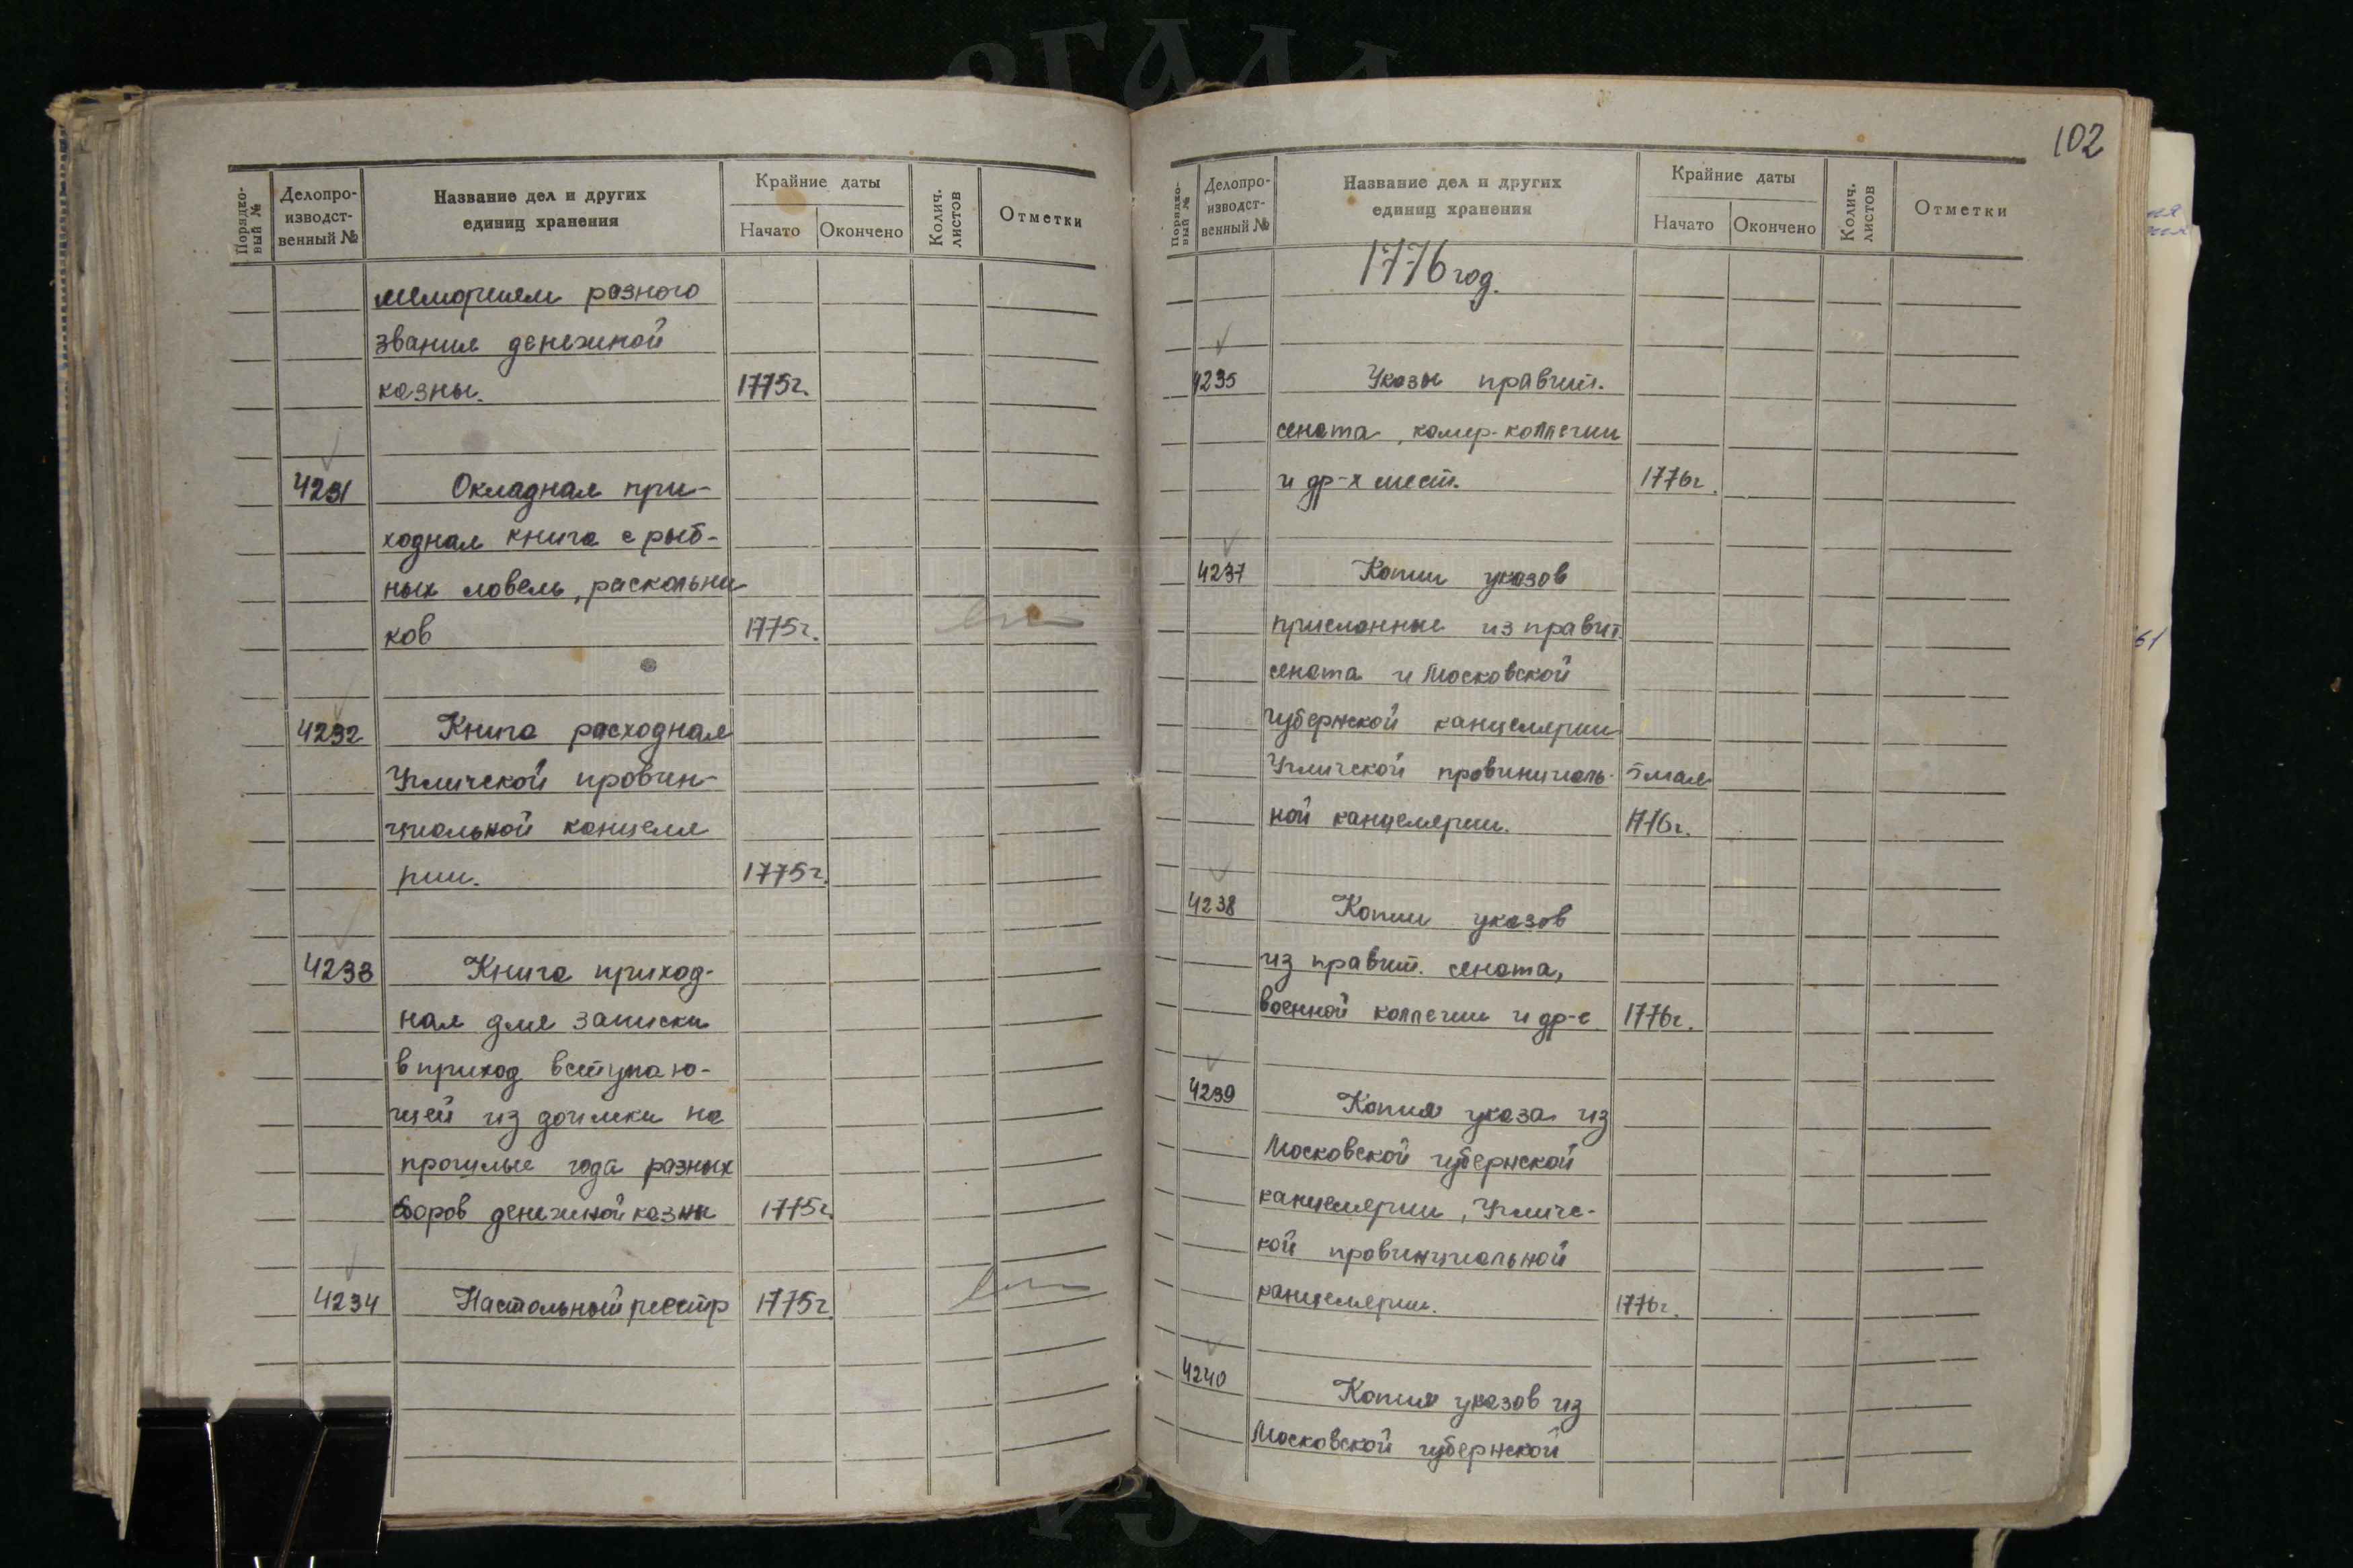 Порядко-
вый №
Делопро-
изводст-
венный №
Название дел и других
единиц хранения
Крайние даты
Начато
Окончено
Колич.
листов
Отметки
мемориям разного
звания денежной
казны. 1775г.
4231 Окладная при-
ходная книга с рыб-
ных ловель, раскольни
ков 1775г.
4232 Книга расходная
Угличской провин-
циальной канцеля
рии. 1775г.
4233 Книга приход-
ная для записки
в приход вступаю-
щей из доимки на
прошлые года разных
сборов денежной казны 1775г.
4234 Настольный реестр 1775г.
102
Порядко-
вый №
Делопро-
изводст-
венный №
Название дел и других
единиц хранения
Крайние даты
Начато
Окончено
Колич.
листов
Отметки
1776 год.
4235 Указы правит.
сената, камер-коллегии
и др-х мест. 1776г.
4237 Копии указов
присланные из правит
сената и Московской
губернской канцелярии
Угличской провинциаль- 5 мая
ной канцелярии. 1776г.
4238 Копии указов
из правит. сената,
военной коллегии и др-е 1776г.
4239 Копия указа из
Московской губернской
канцелярии, Угличс-
кой провинциальной
канцелярии. 1776г.
4240 Копия указов из
Московской губернской